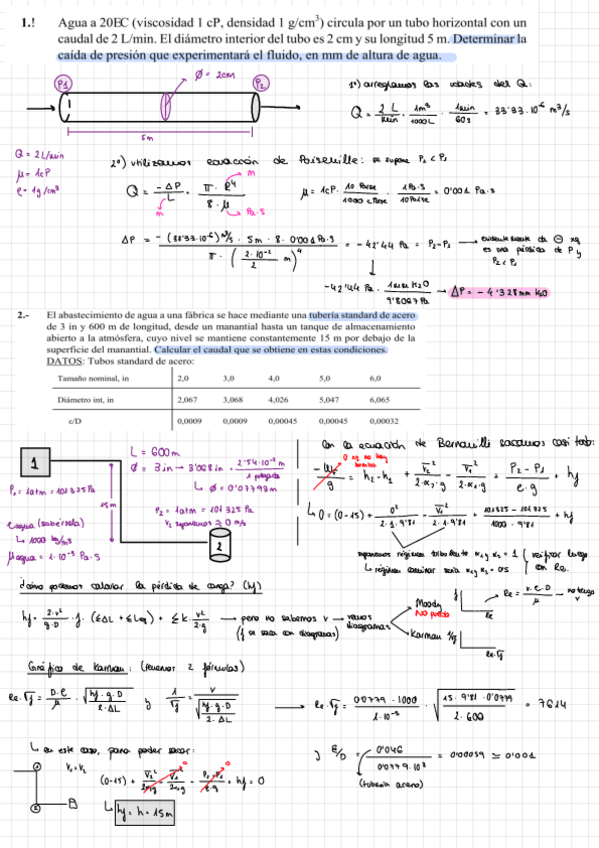 1.! Agua a 20EC (viscosidad 1 cP, densidad 1 g/cm³) circula por un tubo horizontal con un
caudal de 2 L/min. El diámetro interior del tubo es 2 cm y su longitud 5 m. Determinar la
caída de presión que experimentará el fluido, en mm de altura de agua.
P1
Ø = 2cm
P2
5m
1º) arreglamos las unidades del Q:
Q = 2 L/min · 1m³/1000L · 1min/60s = 33'33·10⁻⁶ m³/s
Q = 2L/min
μ = 1cP
ρ = 1g/cm³
2º) utilizamos ecuación de Poiseuille: se supone P2 < P1
Q = -ΔP/L · π·R⁴/8·μ
m
m
Pa·s
μ = 1cP · 10 Poise/1000 cPoise · 1Pa·s/10Poise = 0'001 Pa·s
ΔP = -(33'33·10⁻⁶) m³/s · 5m · 8 · 0'001 Pa·s / π · (2·10⁻²/2 m)⁴ = -42'44 Pa = P2-P1
es una pérdida de P y
P2 < P1
-42'44 Pa · 1mm H2O/9'8067 Pa → ΔP = -4'328 mm H2O
2.- El abastecimiento de agua a una fábrica se hace mediante una tubería standard de acero
de 3 in y 600 m de longitud, desde un manantial hasta un tanque de almacenamiento
abierto a la atmósfera, cuyo nivel se mantiene constantemente 15 m por debajo de la
superficie del manantial. Calcular el caudal que se obtiene en estas condiciones.
DATOS: Tubos standard de acero:
Tamaño nominal, in 2,0 3,0 4,0 5,0 6,0
Diámetro int, in 2,067 3,068 4,026 5,047 6,065
ε/D 0,0009 0,0009 0,00045 0,00045 0,00032
1
L = 600m
Ø = 3in → 3'068in · 2'54·10⁻² m / 1 pulgada
↳ Ø = 0'07793m
P1 = 1atm = 101325 Pa
15m
P2 = 1atm = 101325 Pa
V2 suponemos ≈ 0 m/s
ρagua (sabérsela)
↳ 1000 kg/m³
μagua = 1·10⁻³ Pa·s
2
Con la ecuación de Bernouilli sacamos casi todo:
0 xq no hay bomba
-W/g = h2-h1 + V2²/2·α2·g - V1²/2·α1·g + P2-P1/ρ·g + hf
↳ 0 = (0-15) + 0²/2·1·9'81 - V1²/2·1·9'81 + 101325-101325/1000·9'81 + hf
suponemos régimen turbulento α1 y α2 = 1
↳ régimen laminar sería α1 y α2 = 0'5
verificar luego
con Re.
¿cómo podemos calcular la pérdida de carga? (hf)
hf = 2·v²/g·D · f · (ΣΔL + ΣLeq) + Σk·v²/2·g → pero no sabemos v → varios diagramas
(f se saca con diagramas)
Moody
NO puedo
Karman
f
Re
1/√f
Re·√f
Re = v·ρ·D/μ → no tengo v
Gráfico de Karman: (tenemos 2 fórmulas)
Re·√f = D·ρ/μ · √(hf·g·D/2·ΔL) y 1/√f = v/√(hf·g·D/2·ΔL) → Re·√f = 0'0779·1000/1·10⁻³ · √(15·9'81·0'0779/2·600) = 7614
↳ en este caso, para poder sacar:
V1 = V2
(0-15) + V2²/2α2g - V1²/2α1g + P2-P1/ρ·g + hf = 0
↳ hf = h = 15m
ε/D = 0'046/0'0779·10³ = 0'00059 ≃ 0'001
(tubería acero)